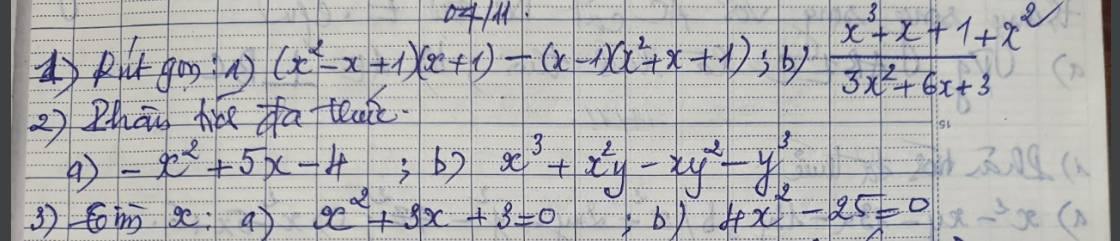 04/11.
1) Rút gọn: 1) (x²-x+1)(x+1) - (x-1)(x²+x+1); b) (x³+x+1+x²)/(3x²+6x+3)
2) Phân tích đa thức.
a) -x²+5x-4 ; b) x³+x²y-xy²-y³
3) Tìm x: a) x²+3x+3=0 ; b) 4x²-25=0